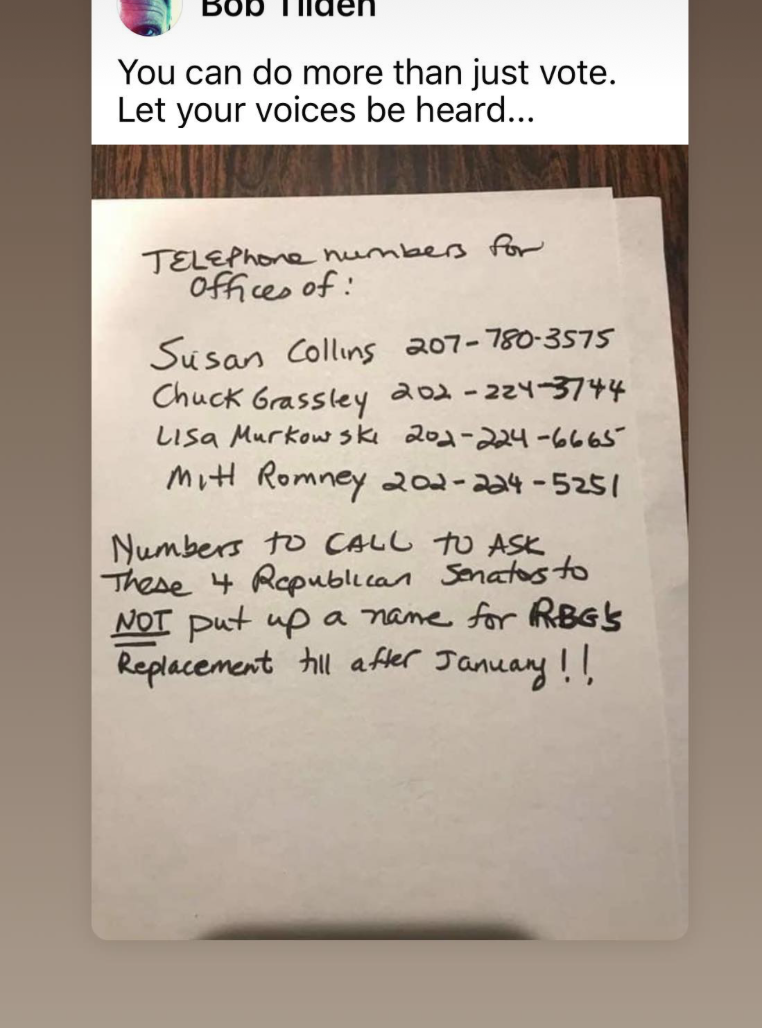 Bob Tilden
You can do more than just vote.
Let your voices be heard...
TELEphone numbers for
Offices of:
Susan Collins 207-780-3575
Chuck Grassley 202-224-3744
Lisa Murkowski 202-224-6665
Mitt Romney 202-224-5251
Numbers to CALL TO ASK
These 4 Republican Senators to
NOT put up a name for RBG's
Replacement till after January!!